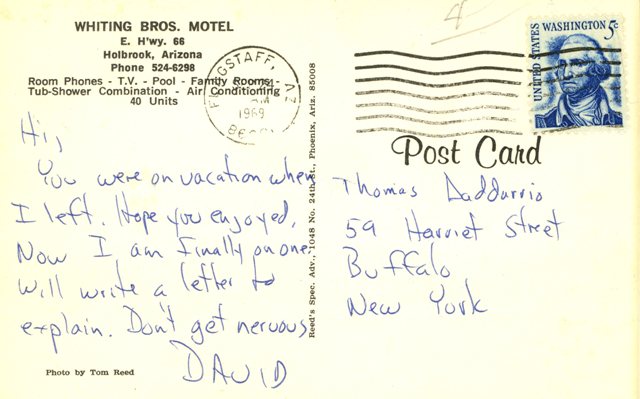 WHITING BROS. MOTEL
E. H'wy. 66
Holbrook, Arizona
Phone 524-6298
Room Phones - T.V. - Pool - Family Rooms
Tub-Shower Combination - Air Conditioning
40 Units
FLAGSTAFF, AZ
1969
Hi,
You were on vacation when
I left. Hope you enjoyed,
Now I am finally on one,
will write a letter to
explain. Don't get nervous
DAVID
Photo by Tom Reed
Reed's Spec. Adv., 1048 No. 24th St., Phoenix, Ariz. 85008
4
UNITED STATES
WASHINGTON 5c
Post Card
Thomas Daddurrio
59 Harriet Street
Buffalo
New York